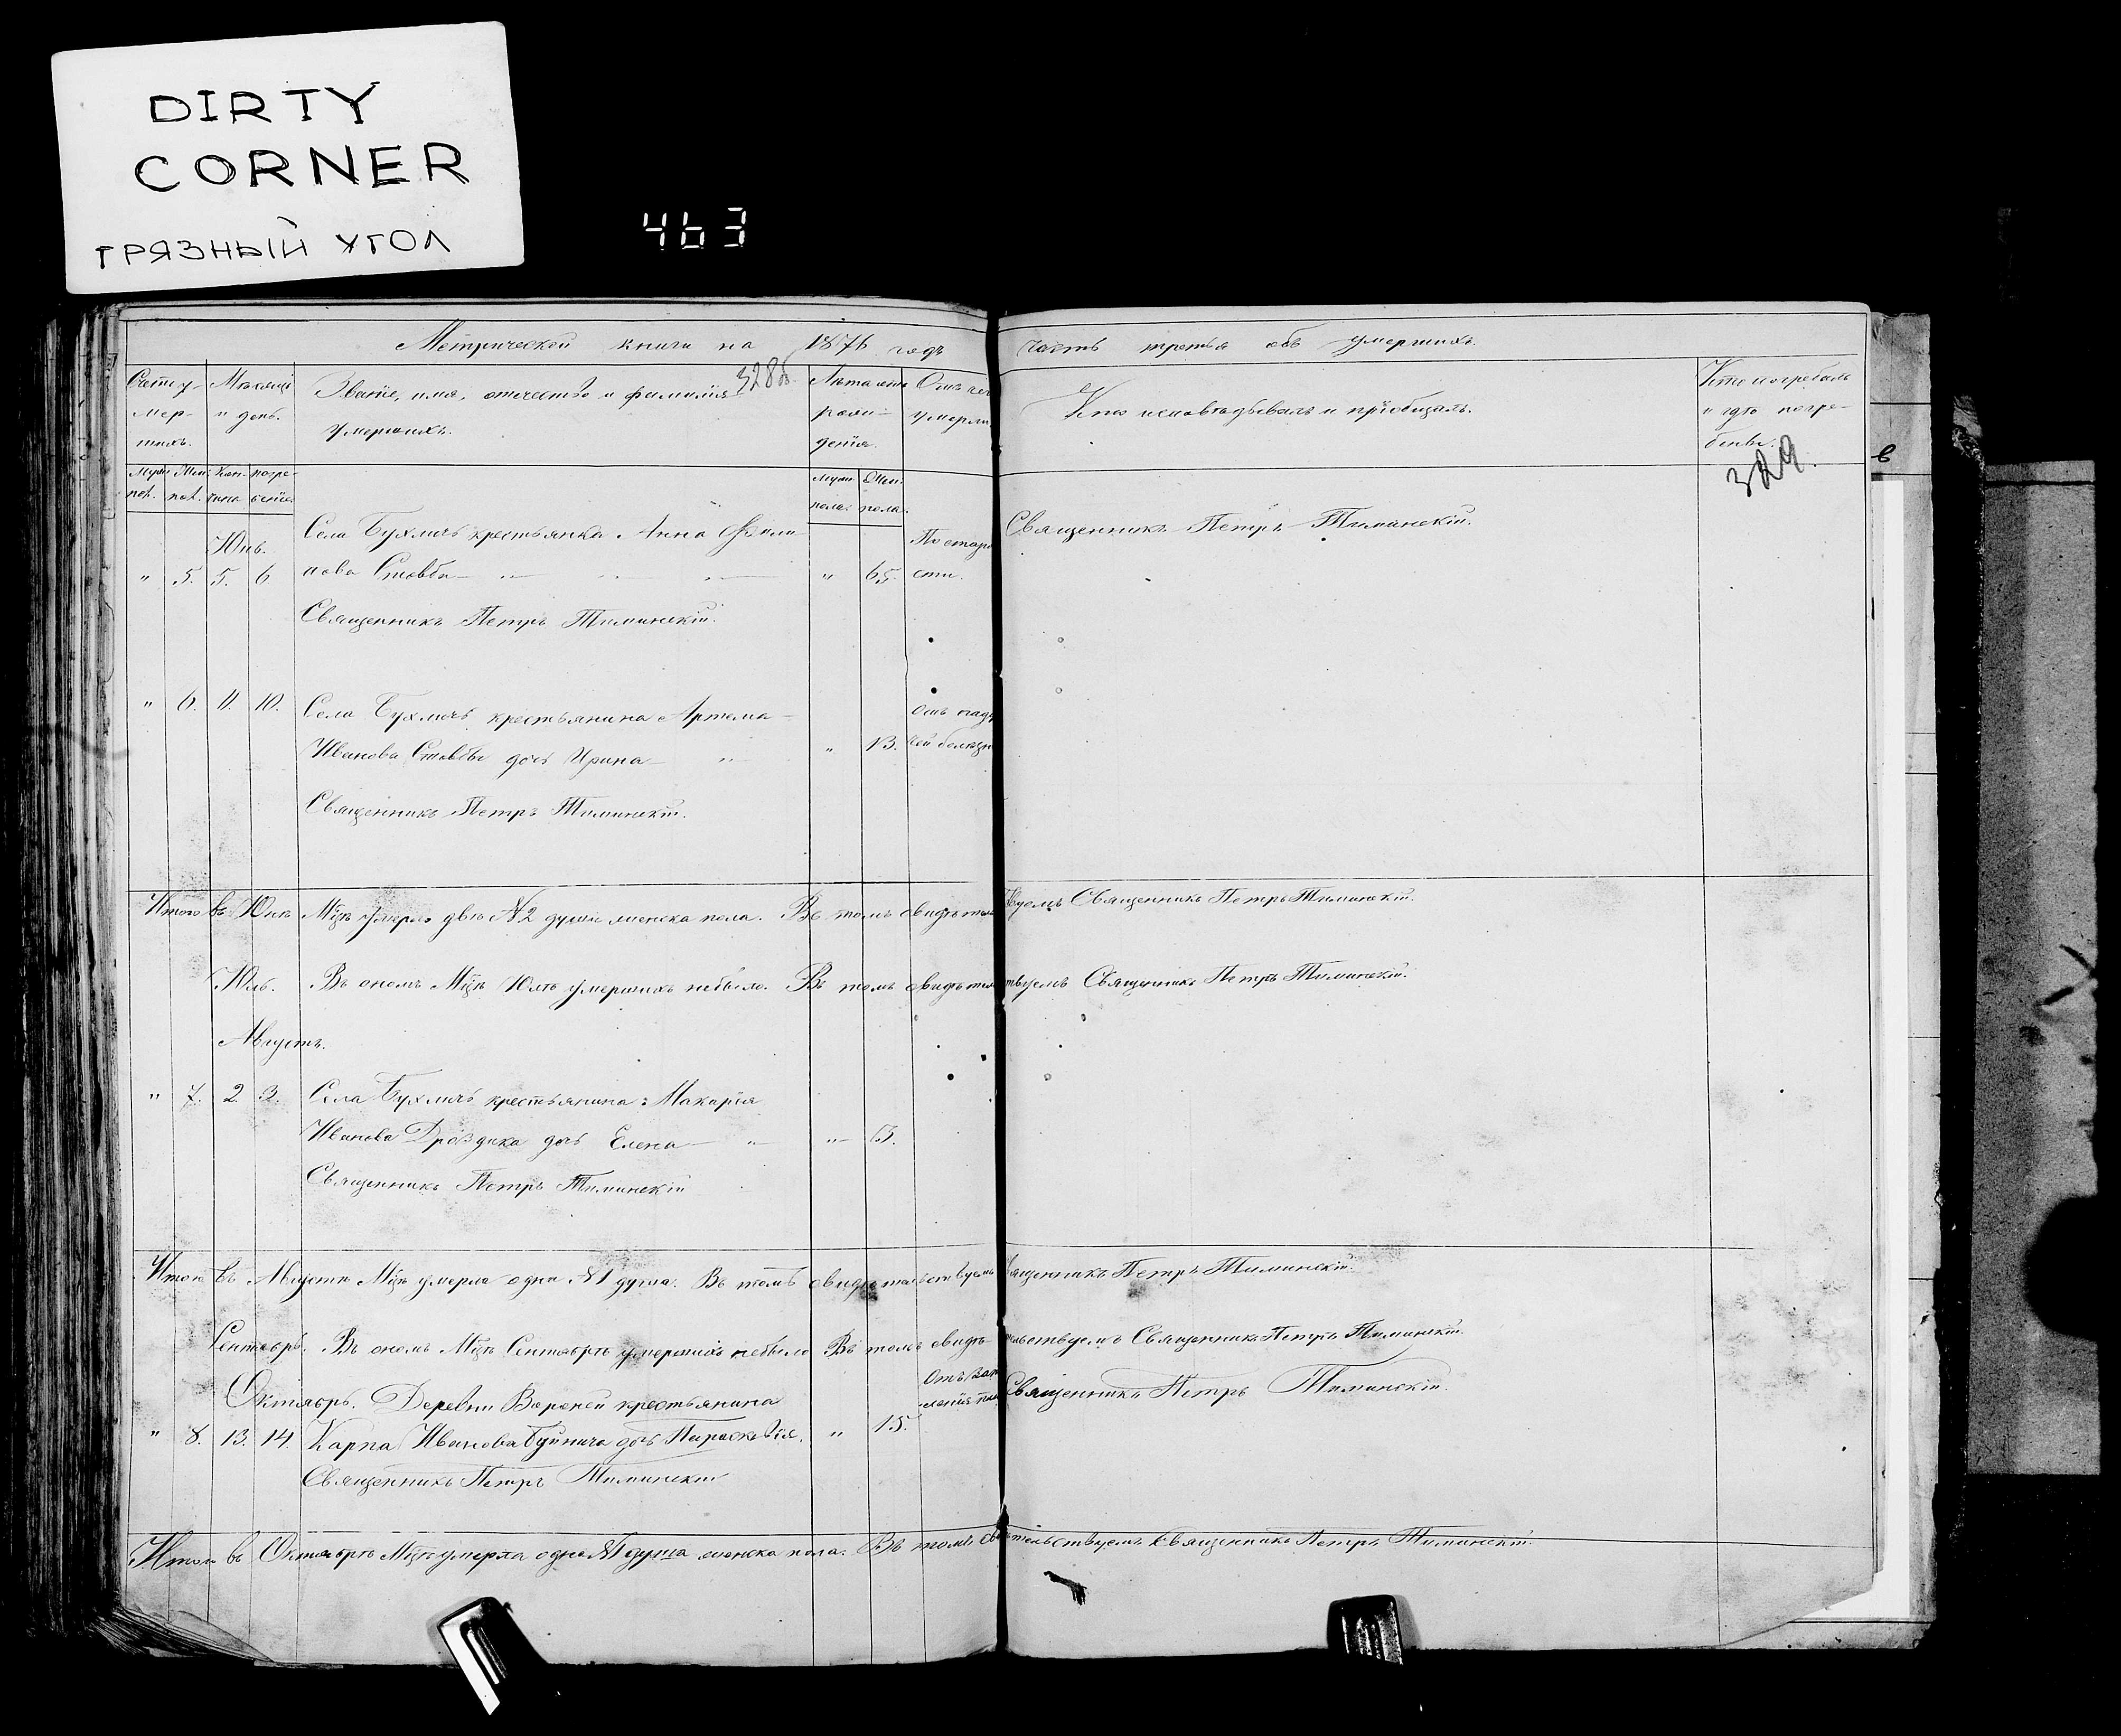 DIRTY
CORNER
ГРЯЗНЫЙ УГОЛ
463
Метрической книги на 1876 годъ часть третья объ умершихъ.
328об.
Счетъ у-
мер-
шихъ.
Мѣсяцъ
и день.
Званіе, имя, отчество и фамилія
умершихъ.
Лѣта отъ
рож-
денія.
Отъ чего
умерли
Кто исповѣдывалъ и пріобщалъ.
Кто погребалъ
и гдѣ погре-
бены.
329.
Муж. пол.
Жен. пол.
Кон-
чина
погре-
бенія.
Муж. пола.
Жен. пола.
Юнь.
" 5. 5. 6
Села Бухличь крестьянка Анна Фили-
пова Стовба " 65.
По старо
сти.
Священникъ Петръ Тиминскій.
Священникъ Петръ Тиминскій.
" 6. 11. 10.
Села Бухличь крестьянина Артема
Иванова Стовбы дочь Ирина " 13.
Отъ
чей болѣзн
Священникъ Петръ Тиминскій.
Итого въ Юнѣ Мцѣ умерло двѣ №2 души женска пола. Въ томъ свидѣтельствуемъ Священникъ Петръ Тиминскій.
Юль. Въ ономъ Мцѣ Юлѣ умершихъ небыло. Въ томъ свидѣтельствуемъ Священникъ Петръ Тиминскій.
Августъ.
" 7. 2. 3. Села Бухличь крестьянина Макарія
Иванова Дроздика дочь Елена " 13.
Священникъ Петръ Тиминскій
Итого въ Августѣ Мцѣ умерла одна №1 душа. Въ томъ свидѣтельствуемъ Священникъ Петръ Тиминскій.
Сентябрь. Въ ономъ Мцѣ Сентябрѣ умершихъ небыло Въ томъ свидѣтельствуемъ Священникъ Петръ Тиминскій.
Октябрь. Деревни Вороней крестьянина
Священникъ Петръ Тиминскій.
" 8. 13. 14. Карпа Иванова дочь Параскевія. " 15.
Священникъ Петръ Тиминскій
Итого въ Октябрѣ Мцѣ умерла одна №1 душа женска пола. Въ томъ свидѣтельствуемъ Священникъ Петръ Тиминскій.